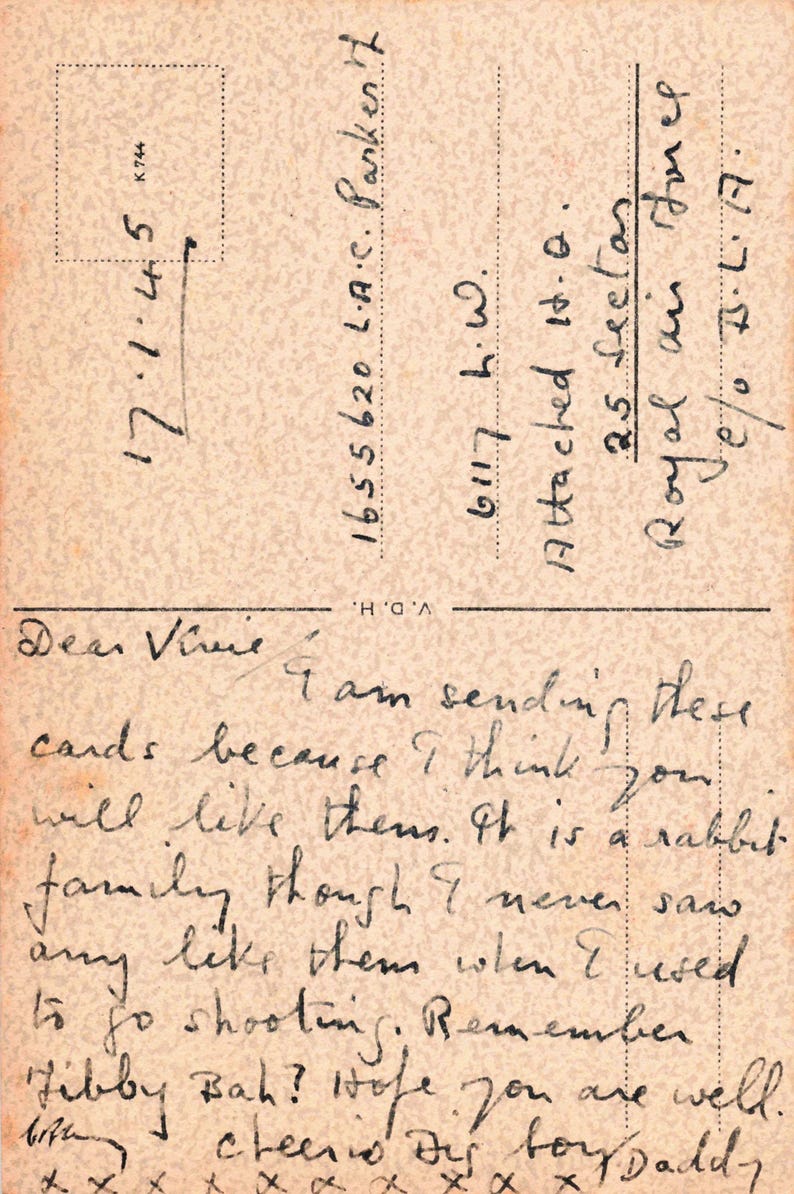 K744
17.1.45
1655620 L.A.C. Parker H
6117 L.W.
Attached H.Q.
25 Sector
Royal air Force
c/o B.L.A.
V.D.H.
Dear
I am sending these
cards because I think you
will like them. It is a rabbit
family though I never saw
any like them when I used
to go shooting. Remember
Bah? Hope you are well.
cheerio Big boy Daddy
x x x x x x x x x x